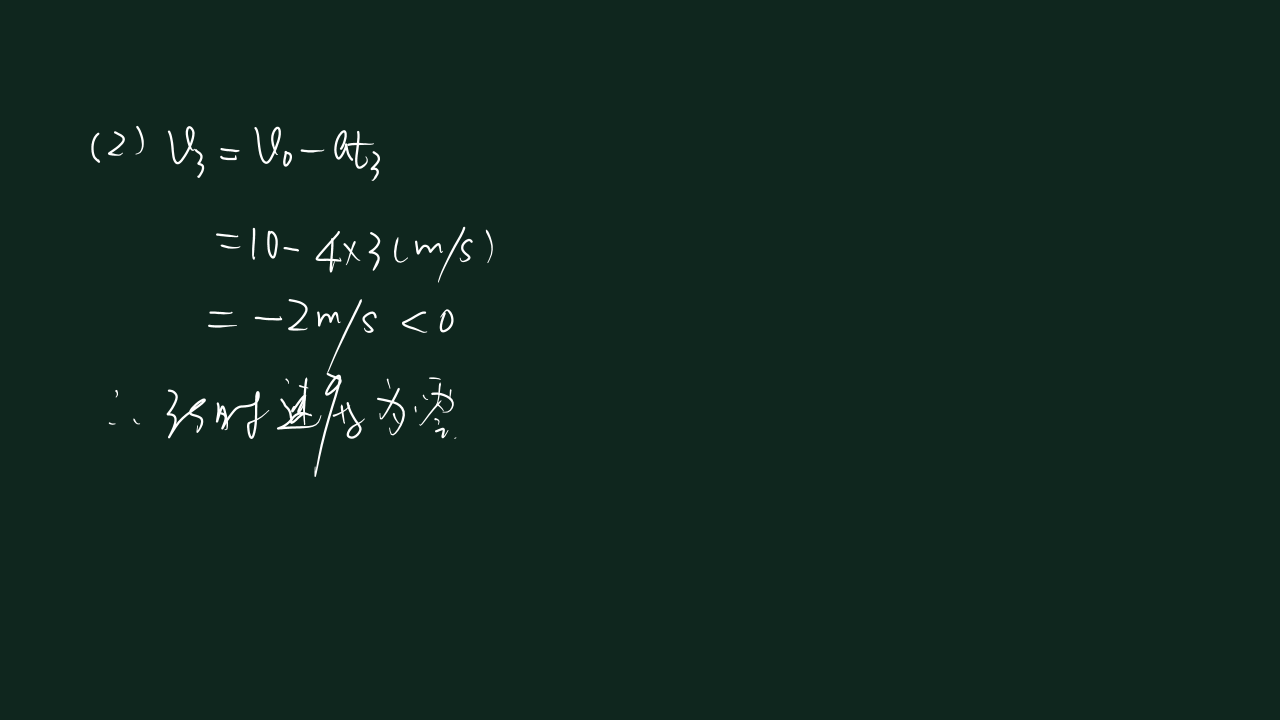 (2) V₃ = V₀ - at₃
= 10 - 4×3 (m/s)
= -2m/s < 0
∴ 3s时速度为零.